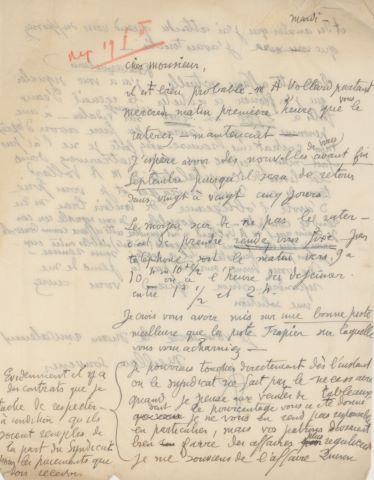 mardi –
rep 19
cher monsieur,
il est bien probable M A Vollard partant
mercredi matin première heure que
vous
le raterez – maintenant –
J'espère avoir des nouvelles de vous avant fin
septembre puisqu'il sera de retour
dans vingt à vingt cinq jours.
Le moyen sûr de ne pas le rater –
c'est de prendre rendez vous fixe par
téléphone soit le matin vers 9h
10h ou 10h 1/2
ou à l'heure du déjeuner.
entre 1h 1/2 et 2h.
Je crois vous avoir mis sur une bonne piste
meilleure que la piste Trapier sur laquelle
vous vous acharniez –
Je pourrais toucher directement dès l'instant
où le syndicat ne fait pas le nécessaire
quand je pense aux ventes de tableaux
dont le pourcentage vous a été donné
je ne vous en rend pas responsable
en particulier, mais vos patrons devraient
bien faire des affaires plus régulières
je me souviens de l'affaire
Evidemment il y a
des contrats que je
tâche de respecter
à condition qu'ils
soient remplis de
la part du Syndicat
les paiements que
dois recevoir